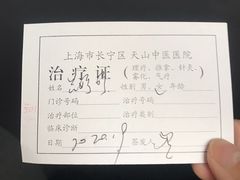 上海市长宁区天山中医医院
治疗证（理疗、推拿、针灸、雾化、气疗）
姓名 性别 男、女 年龄
门诊号码 治疗号码
治疗部位 治疗类别
临床诊断
日期 2020.19 签发人